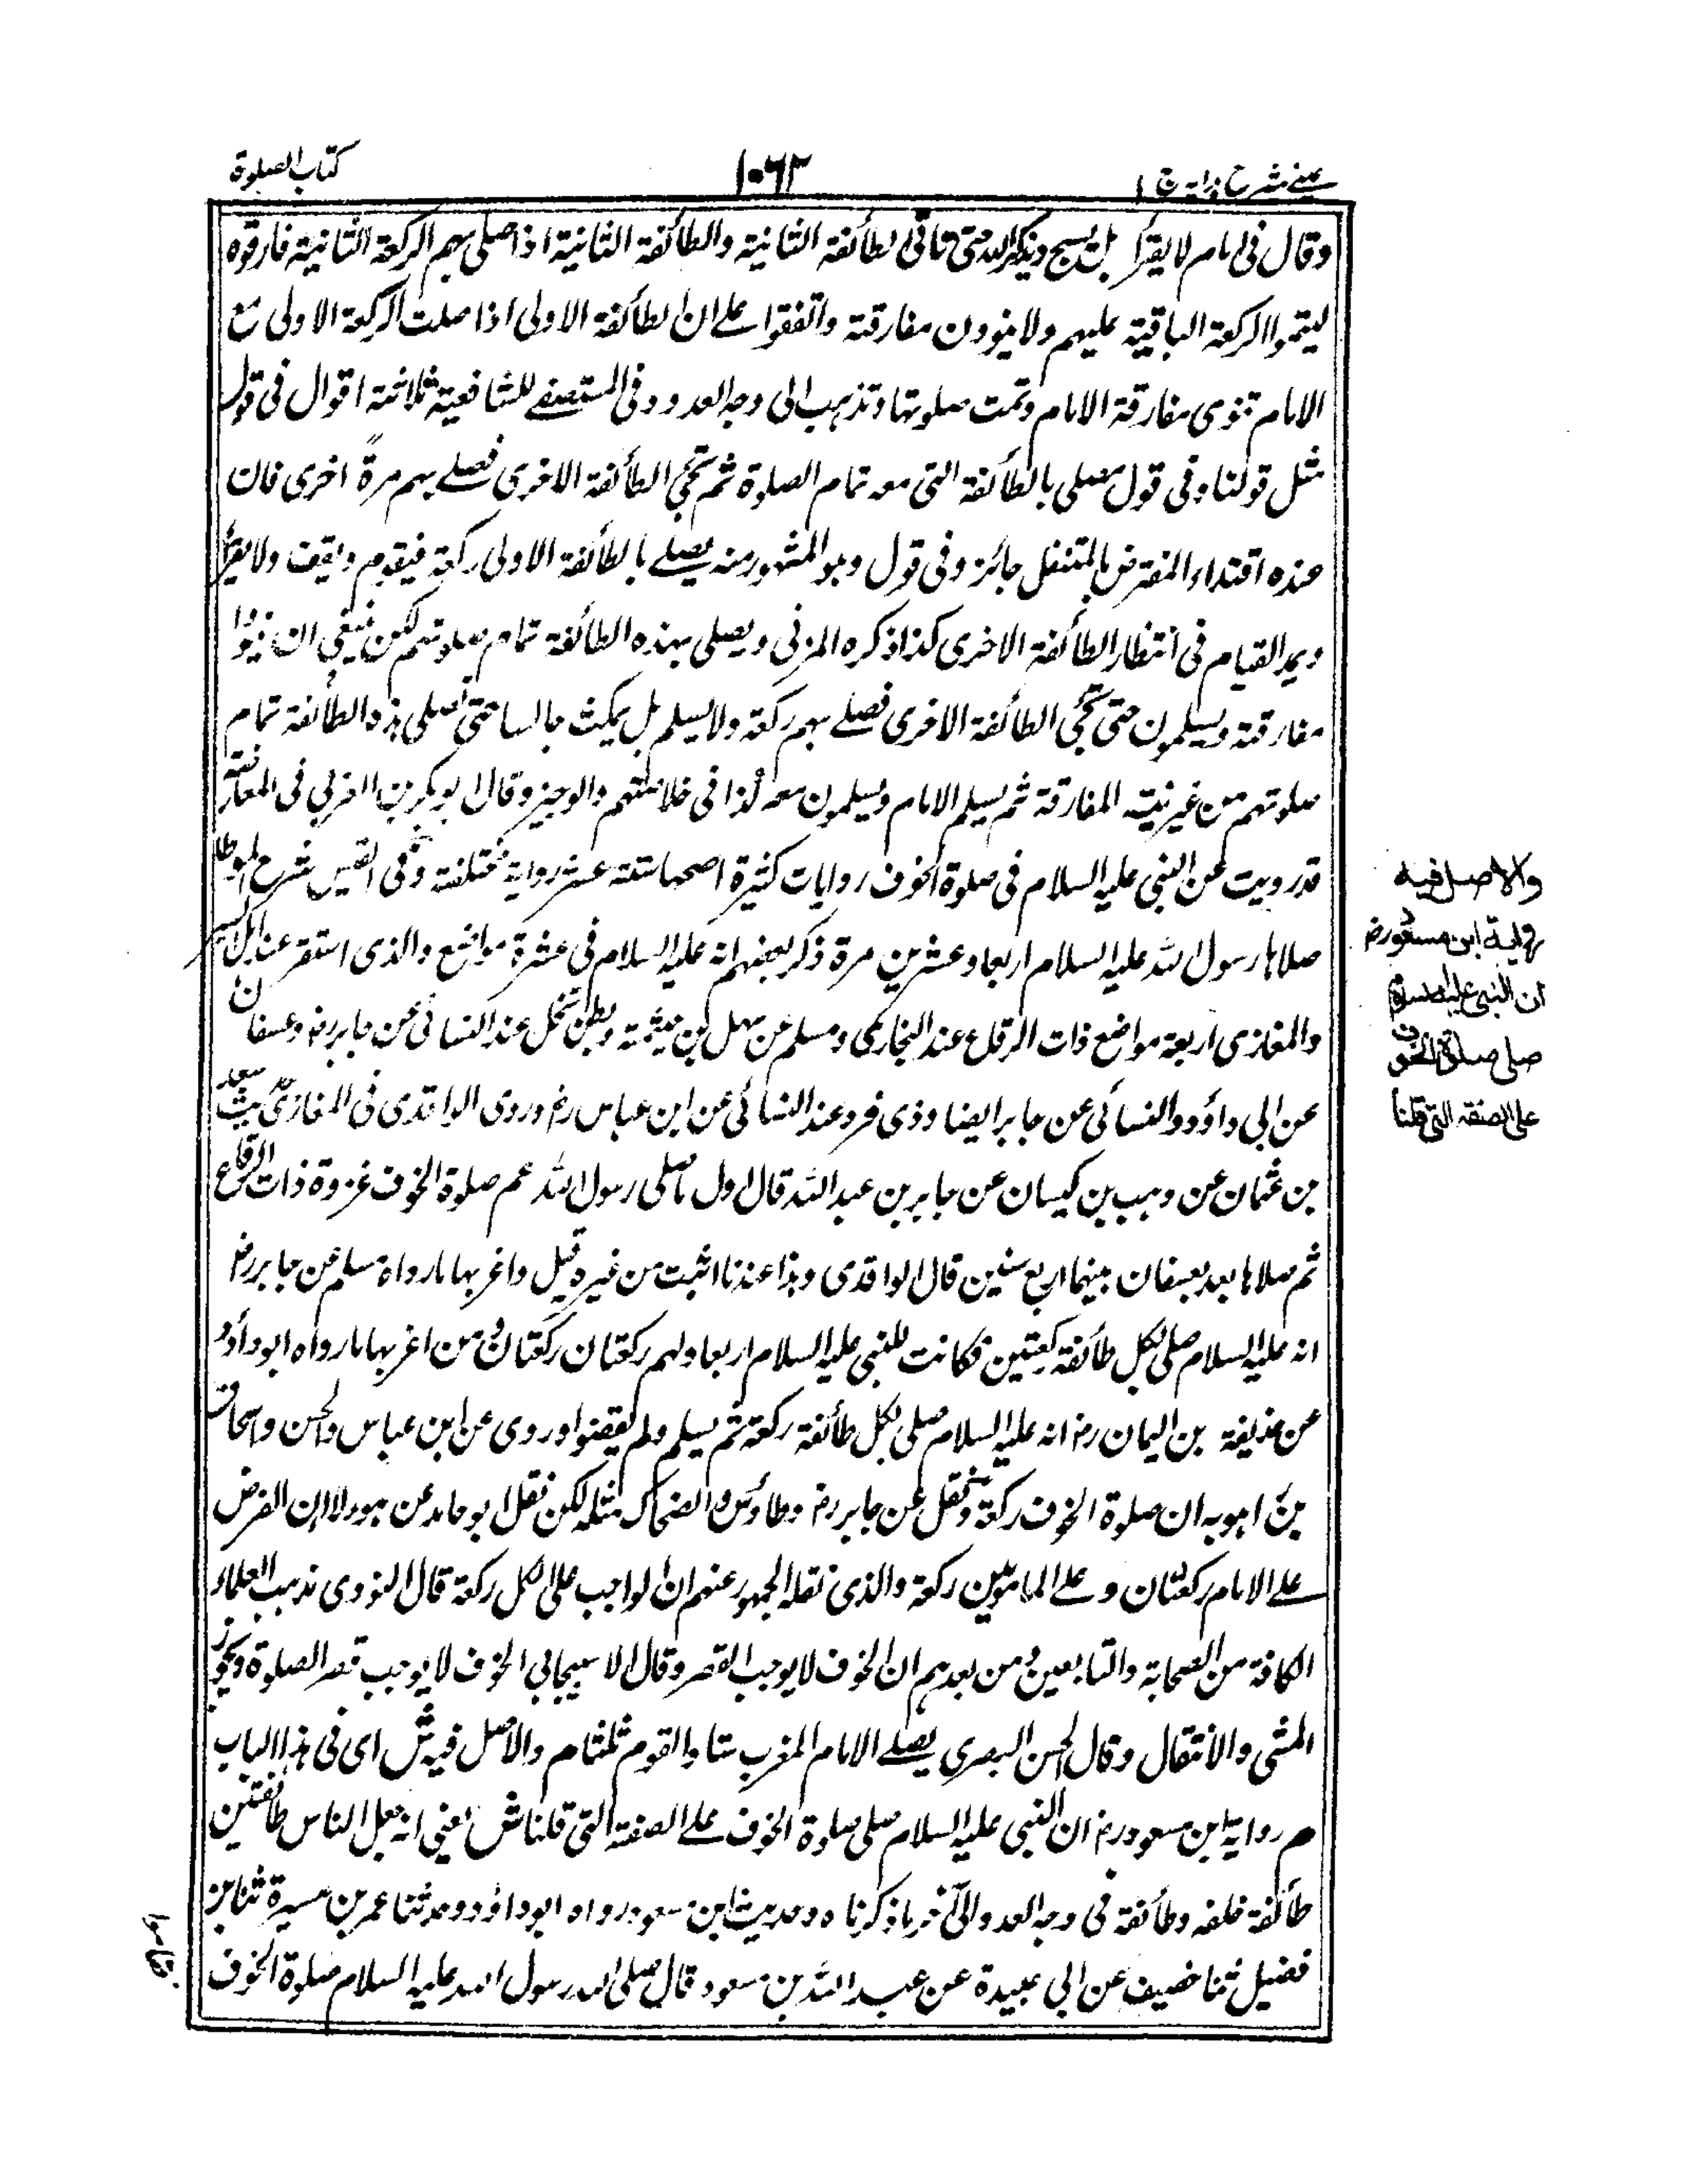 عينى شرح هدايه ج ١
١٠٦٢
كتاب الصلوة
وقال فى الام لا يقرأ بل يسبح ويذكر الله حتى تأتى الطائفة الثانية والطائفة الثانية اذا صلى بهم الركعة الثانية فارقوه
ليتموا الركعة الباقية عليهم ولا ينوون مفارقته واتفقوا على ان الطائفة الاولى اذا صلت الركعة الاولى مع
الامام تنوى مفارقة الامام وتمت صلوتها وتذهب الى وجه العدو وفى المستصفے للشافعية ثلاثة اقوال فى قول
مثل قولنا وفى قول يصلى بالطائفة التى معه تمام الصلوة ثم تجئ الطائفة الاخرى فصلے بهم مرة اخرى فان
عنده اقتداء المفترض بالمتنفل جائز وفى قول وهو المشهور منه يصلے بالطائفة الاولى ركعة فيقوم ويقف ولا يقرأ
ويمد القيام فى انتظار الطائفة الاخرى كذا ذكره المزنى ويصلى بهذه الطائفة تمام صلوتهم لكن ينبغى ان ينووا
مفارقته ويسلمون حتى تجئ الطائفة الاخرى فصلے بهم ركعة ولا يسلم بل يمكث جالسا حتى تصلى هذه الطائفة تمام
صلوتهم من غير نية المفارقة ثم يسلم الامام ويسلمون معه كذا فى خلاصتهم والوجيز وقال ابو بكر بن العربى فى المعارضة
قد رويت عن النبى عليه السلام فى صلوة الخوف روايات كثيرة اصحها ستة عشر رواية مختلفة وفى القبس شرح الموطا
صلاها رسول الله عليه السلام اربعا وعشرين مرة ذكر بعضهم انه عليه السلام فى عشرة مواضع والذى استقر عند اهل السير
والمغازى اربعة مواضع ذات الرقاع عند البخارى ومسلم عن سهل بن حثمة وبطن نخل عند النسائى عن جابر رض وعسفان
عن ابى داؤد والنسائى عن جابر ايضا وذى قرد عند النسائى عن ابن عباس رض وروى الواقدى فى المغازى حديث سعد
بن عثمان عن وهب بن كيسان عن جابر بن عبد الله قال اول ما صلى رسول الله عم صلوة الخوف غزوة ذات الرقاع
ثم صلاها بعد بعسفان بينهما اربع سنين قال الواقدى وهذا عندنا اثبت من غيره قيل واغربها ما رواه مسلم عن جابر رض
انه عليه السلام صلى بكل طائفة ركعتين فكانت للنبى عليه السلام اربعا ولهم ركعتان ركعتان ومن اغربها ما رواه ابو داؤد
عن حذيفة بن اليمان رض انه عليه السلام صلى بكل طائفة ركعة ثم يسلم ولم يقضوا وروى عن ابن عباس والحسن واسحاق
بن راهويه ان صلوة الخوف ركعة ونقل عن جابر رض وطاؤس والضحاك مثله لكن نقل ابو حامد عن هؤلاء ان الفرض
علے الامام ركعتان وعلے المامومين ركعة والذى نقله الجمهور عنهم ان الواجب على الكل ركعة قال النووى مذهب العلماء
الكافة من الصحابة والتابعين ومن بعدهم ان الخوف لا يوجب القصر وقال الاسبيجابى الخوف لا يوجب قصر الصلوة ويجوز
المشى والانتقال وقال الحسن البصرى يصلے الامام المغرب ستا والقوم ثلثا م والاصل فيه ش اى فى هذا الباب
م رواية ابن مسعود رض ان النبى عليه السلام صلى صلوة الخوف علے الصفة التى قلنا ش يعنى انه جعل الناس طائفتين
طائفة خلفه وطائفة فى وجه العدو والى آخر ما ذكرناه وحديث ابن مسعود رواه ابو داؤد وحدثنا عمر بن ميسرة ثنا بن
فضيل ثنا خصيف عن ابى عبيدة عن عبد الله بن مسعود قال صلى الله رسول الله عليه السلام صلوة الخوف
والاصل فيه
رواية ابن مسعود رض
ان النبى عليه السلام
صلى صلوة الخوف
على الصفة التى قلنا